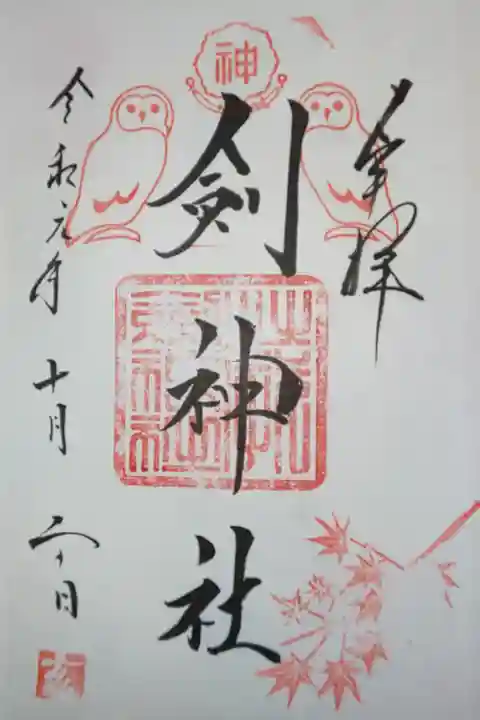 奉拝
神
剣神社
令和元年 十月 二十日